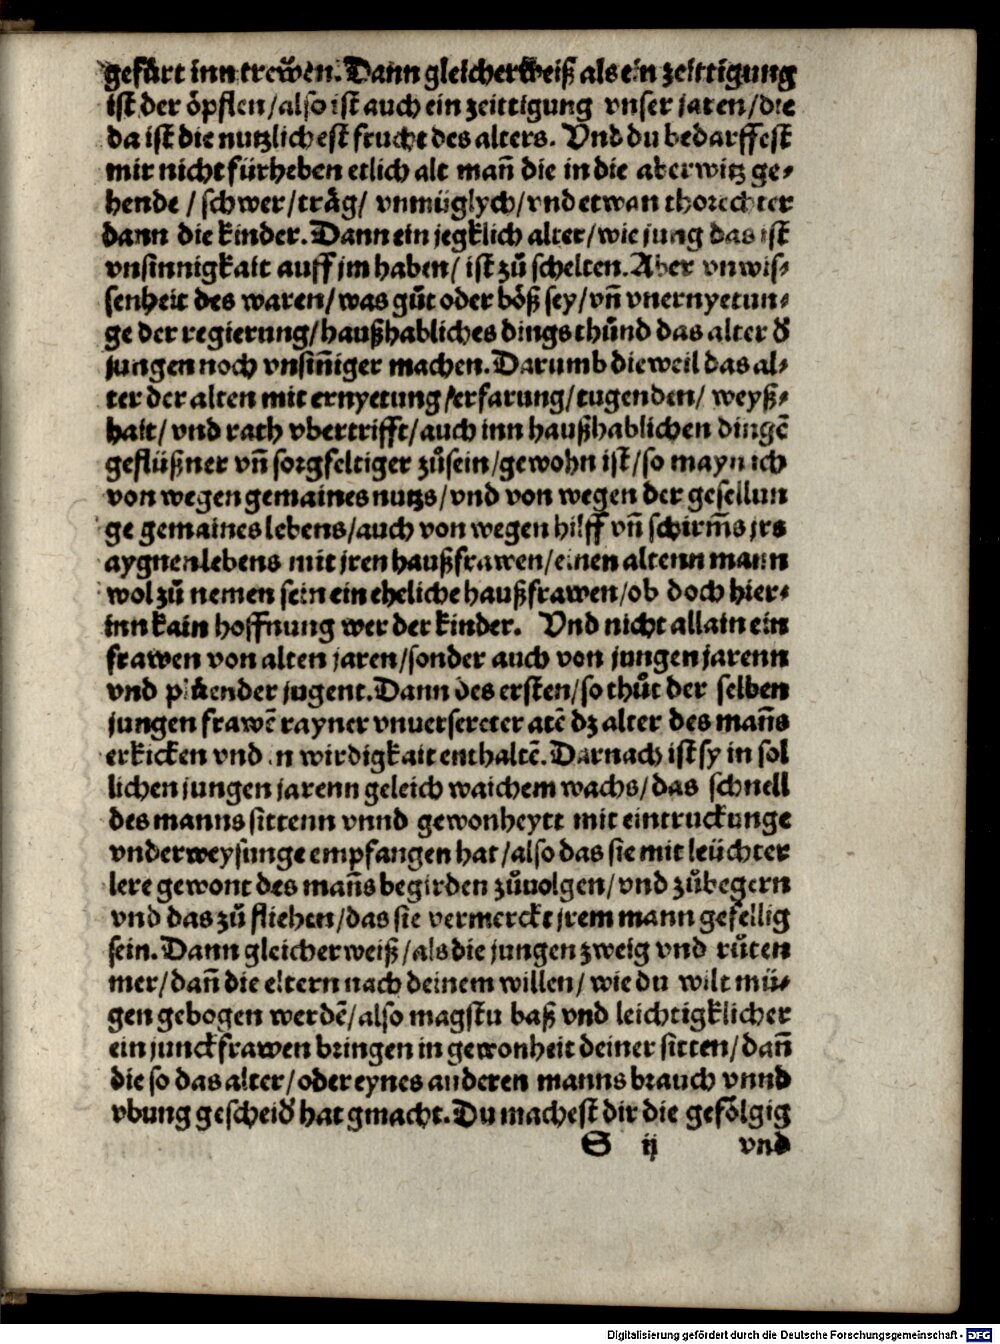 gefürt inn trewen. Dann gleicherweiß als ein zeittigung
ist der öpflen/also ist auch ein zeittigung vnser jaren/die
da ist die nutzlichest frucht des alters. Vnd du bedarffest
mir nicht fürheben etlich alt mañ die in die aberwitz ge⸗
hende / schwer/träg/ vnmüglych/vnd etwan thorechter
dann die kinder. Dann ein jegklich alter/wie jung das ist
vnsinnigkait auff jm haben/ ist zů schelten. Aber vnwis⸗
senheit des waren/was gůt oder böß sey/vñ vnernyetun⸗
ge der regierung/haußhabliches dings thůnd das alter d̕
jungen noch vnsiñiger machen. Darumb dieweil das al⸗
ter der alten mit ernyetung/erfarung/tugenden/ weyß⸗
hait/ vnd rath vbertrifft/auch inn haußhablichen dingē
geflüßner vñ sorgfeltiger zůsein/gewohn ist/so mayn ich
von wegen gemaines nutzs/vnd von wegen der gesellun
ge gemaines lebens/auch von wegen hilff vñ schirm̃s jrs
aygnen lebens mit jren haußfrawen/einen altenn mann
wol zů nemen sein ein eheliche haußfrawen/ob doch hier⸗
inn kain hoffnung wer der kinder. Vnd nicht allain ein
frawen von alten jaren/sonder auch von jungen jarenn
vnd plüender jugent. Dann des ersten/so thůt der selben
jungen frawē rayner vnuersereter atē dz alter des mañs
erkicken vnd in wirdigkait enthaltē. Darnach ist sy in sol
lichen jungen jarenn geleich waichem wachs/das schnell
des manns sittenn vnnd gewonheytt mit eintruckunge
vnderweysunge empfangen hat/also das sie mit leüchter
lere gewont des mañs begirden zůuolgen/vnd zůbegern
vnd das zů fliehen/das sie vermerckt jrem mann gefellig
sein. Dann gleicherweiß/als die jungen zweig vnd růten
mer/dañ die eltern nach deinem willen/ wie du wilt mü⸗
gen gebogen werdē/also magstu baß vnd leichtigklicher
ein junckfrawen bringen in gewonheit deiner sitten/dañ
die so das alter/oder eynes anderen manns brauch vnnd
vbung gescheid̕ hat gmacht. Du machest dir die gefölgig
S ij vnd
Digitalisierung gefördert durch die Deutsche Forschungsgemeinschaft - DFG